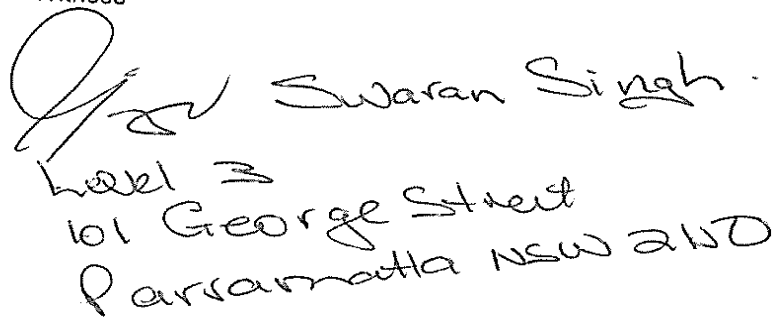 Witness
Swaran Singh.
Level 3
101 George Street
Parramatta NSW 2150